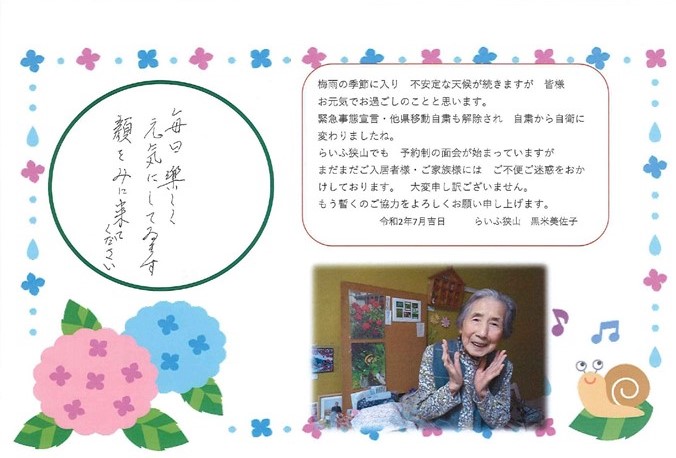 毎日楽しく
元気にしてゐます
顔をみに来て
ください
梅雨の季節に入り　不安定な天候が続きますが　皆様
お元気でお過ごしのことと思います。
緊急事態宣言・他県移動自粛も解除され　自粛から自衛に
変わりましたね。
らいふ狭山でも　予約制の面会が始まっていますが
まだまだご入居者様・ご家族様には　ご不便ご迷惑をおか
けしております。　大変申し訳ございません。
もう暫くのご協力をよろしくお願い申し上げます。
令和2年7月吉日　　　らいふ狭山　黒米美佐子